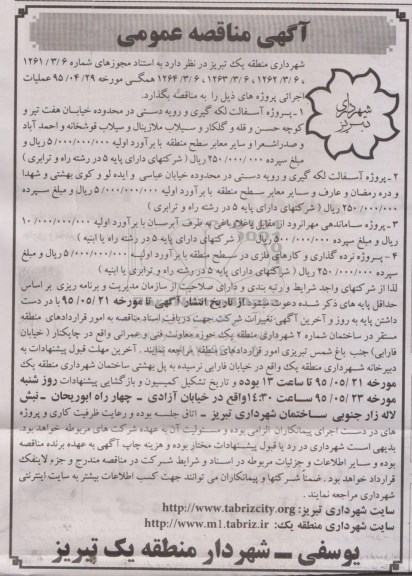 آگهی مناقصه عمومی
شهرداری منطقه یک تبریز در نظر دارد به استناد مجوزهای شماره ۱۲۶۱/۳/۶
، ۱۲۶۲/۳/۶ ، ۱۲۶۳/۳/۶ ، ۱۲۶۴/۳/۶ همگی مورخه ۹۵/۰۴/۲۹ عملیات
اجرائی پروژه های ذیل را به مناقصه بگذارد.
۱- پروژه آسفالت لکه گیری و رویه دستی در محدوده خیابان هفت تیر و
کوچه حسن و قله و گلکار و سیلاب ملازینال و سیلاب قوشخانه و احمد آباد
و صدراشعرا و سایر معابر سطح منطقه با برآورد اولیه ۵/۰۰۰/۰۰۰/۰۰۰ ریال و
مبلغ سپرده ۲۵۰/۰۰۰/۰۰۰ ریال ( شرکتهای دارای پایه ۵ در رشته راه و ترابری )
شهرداری تبریز
۲- پروژه آسفالت لکه گیری و رویه دستی در محدوده خیابان عباسی و ایده لو و کوی بهشتی و شهدا
و دره رمضان و عارف و سایر معابر سطح منطقه با برآورد اولیه ۵/۰۰۰/۰۰۰/۰۰۰ ریال و مبلغ سپرده
۲۵۰/۰۰۰/۰۰۰ ریال ( شرکتهای دارای پایه ۵ در رشته راه و ترابری )
۳- پروژه ساماندهی مهرانرود از مقابل باغلارباغی به طرف آبرسان با برآورد اولیه ۱۰/۰۰۰/۰۰۰/۰۰۰
ریال و مبلغ سپرده ۵۰۰/۰۰۰/۰۰۰ ریال ( شرکتهای دارای پایه ۵ در رشته راه یا ابنیه )
۴- پروژه نرده گذاری و کارهای فلزی در سطح منطقه با برآورد اولیه ۵/۰۰۰/۰۰۰/۰۰۰ ریال و مبلغ
سپرده ۲۵۰/۰۰۰/۰۰۰ ریال ( شرکتهای دارای پایه ۵ در رشته راه و ترابری یا ابنیه )
لذا از شرکتهای واجد شرایط و رتبه بندی و دارای صلاحیت از سازمان مدیریت و برنامه ریزی بر اساس
حداقل پایه های ذکر شده دعوت میشود از تاریخ انتشار آگهی تا مورخه ۹۵/۰۵/۲۱ با در دست
داشتن پایه به روز و آخرین آگهی تغییرات شرکت جهت دریافت اسناد مناقصه به امور قراردادهای منطقه
مستقر در ساختمان شماره ۲ شهرداری منطقه یک حوزه معاونت فنی و عمرانی واقع در چایکنار ( خیابان
فارابی) جنب باغ شمس تبریزی امور قراردادهای منطقه مراجعه نمایند . آخرین مهلت قبول پیشنهادات به
دبیرخانه شهرداری منطقه یک واقع در خیابان فارابی نرسیده به پل بهشتی ساختمان شهرداری منطقه یک
مورخه ۹۵/۰۵/۲۱ تا ساعت ۱۳ بوده و تاریخ تشکیل کمیسیون و بازگشایی پیشنهادات روز شنبه
مورخه ۹۵/۰۵/۲۳ ساعت ۱۴:۳۰ واقع در خیابان آزادی – چهار راه ابوریحان – نبش
لاله زار جنوبی – ساختمان شهرداری تبریز – اتاق جلسه بوده و رعایت ظرفیت کاری و پروژه
های در دست اجرای پیمانکاران الزامی بوده و مسئولیت آن به عهده شرکت های مربوطه خواهد بود.
بدیهی است شهرداری در رد یا قبول پیشنهادات مختار بوده و هزینه چاپ آگهی به عهده برنده مناقصه
بوده و سایر اطلاعات و جزئیات مربوطه در اسناد و شرایط شرکت در مناقصه مندرج و جزء لاینفک
قرارداد خواهد بود. ضمناً شرکتها و پیمانکاران می توانند جهت کسب اطلاعات بیشتر به سایت اینترنتی
شهرداری مراجعه نمایند .
سایت شهرداری تبریز: http://www.tabrizcity.org
سایت شهرداری منطقه یک: http://www.m1.tabriz.ir
یوسفی – شهردار منطقه یک تبریز